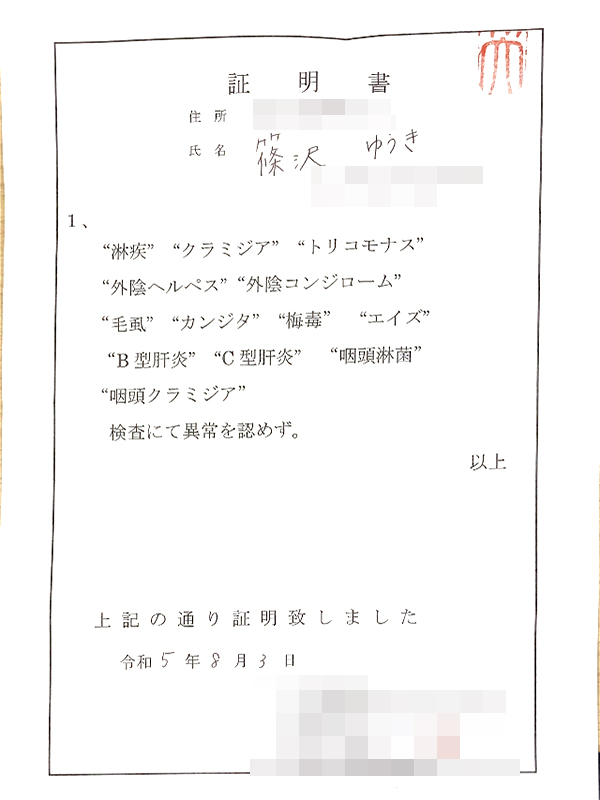 証明書
住所
氏名 篠沢 ゆうき
1、
“淋疾” “クラミジア” “トリコモナス”
“外陰ヘルペス” “外陰コンジローム”
“毛虱” “カンジタ” “梅毒” “エイズ”
“B型肝炎” “C型肝炎” “咽頭淋菌”
“咽頭クラミジア”
検査にて異常を認めず。
以上
上記の通り証明致しました
令和5年8月3日